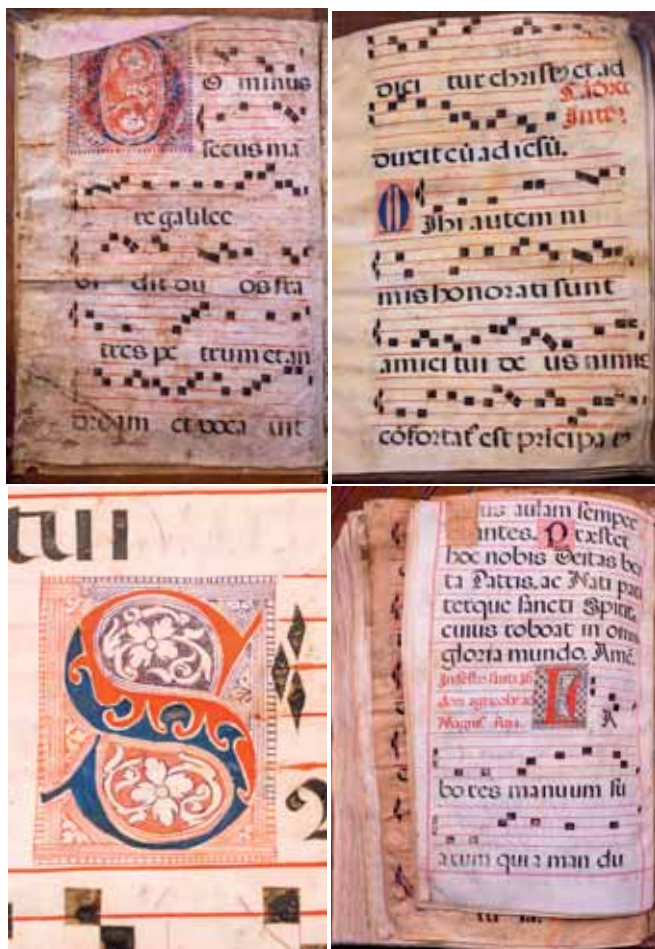 Dominus
secus ma
re galilee
vi dit du os fra
tres pe trum et an
dream et voca vit
dici tur christo et ad
duxit eū ad iesū.
Mihi autem ni
mis honorati sunt
amici tui de us nimis
cōfortat est pricipa
tui
S
us aulam semper
antes. Præstet
hoc nobis Deitas bea
ta Patris, ac Nati pari
terque sancti Spirit
cuius roboat in omni
gloria mundo. Amē.
LA
bores manuum tu
arum quia man du